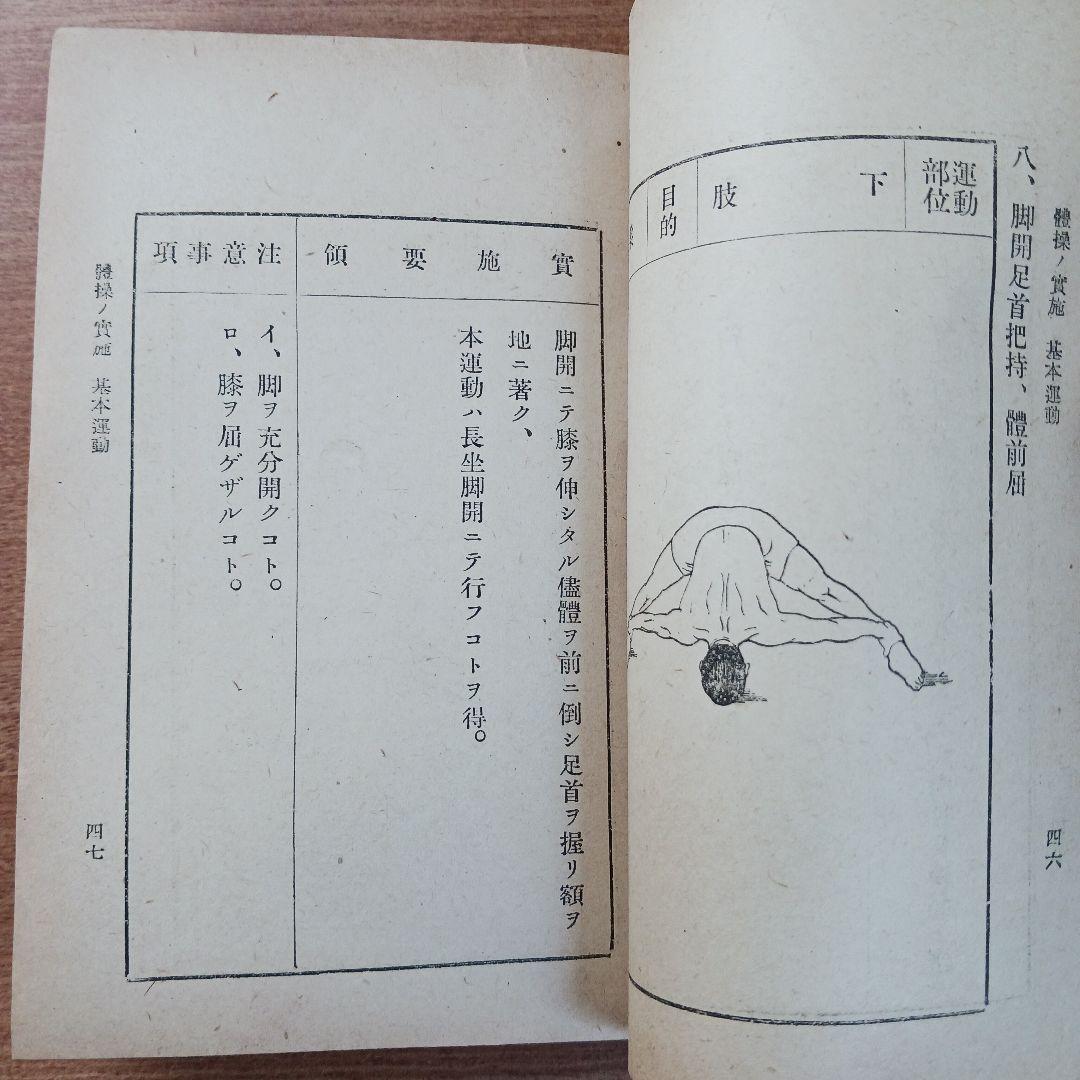 體操ノ實施 基本運動
八、脚開足首把持、體前屈
運動部位
下肢
目的
四六
實施要領
脚開ニテ膝ヲ伸シタル儘體ヲ前ニ倒シ足首ヲ握リ額ヲ
地ニ著ク、
本運動ハ長坐脚開ニテ行フコトヲ得。
注意事項
イ、脚ヲ充分開クコト。
ロ、膝ヲ屈ゲザルコト。
體操ノ實施 基本運動
四七